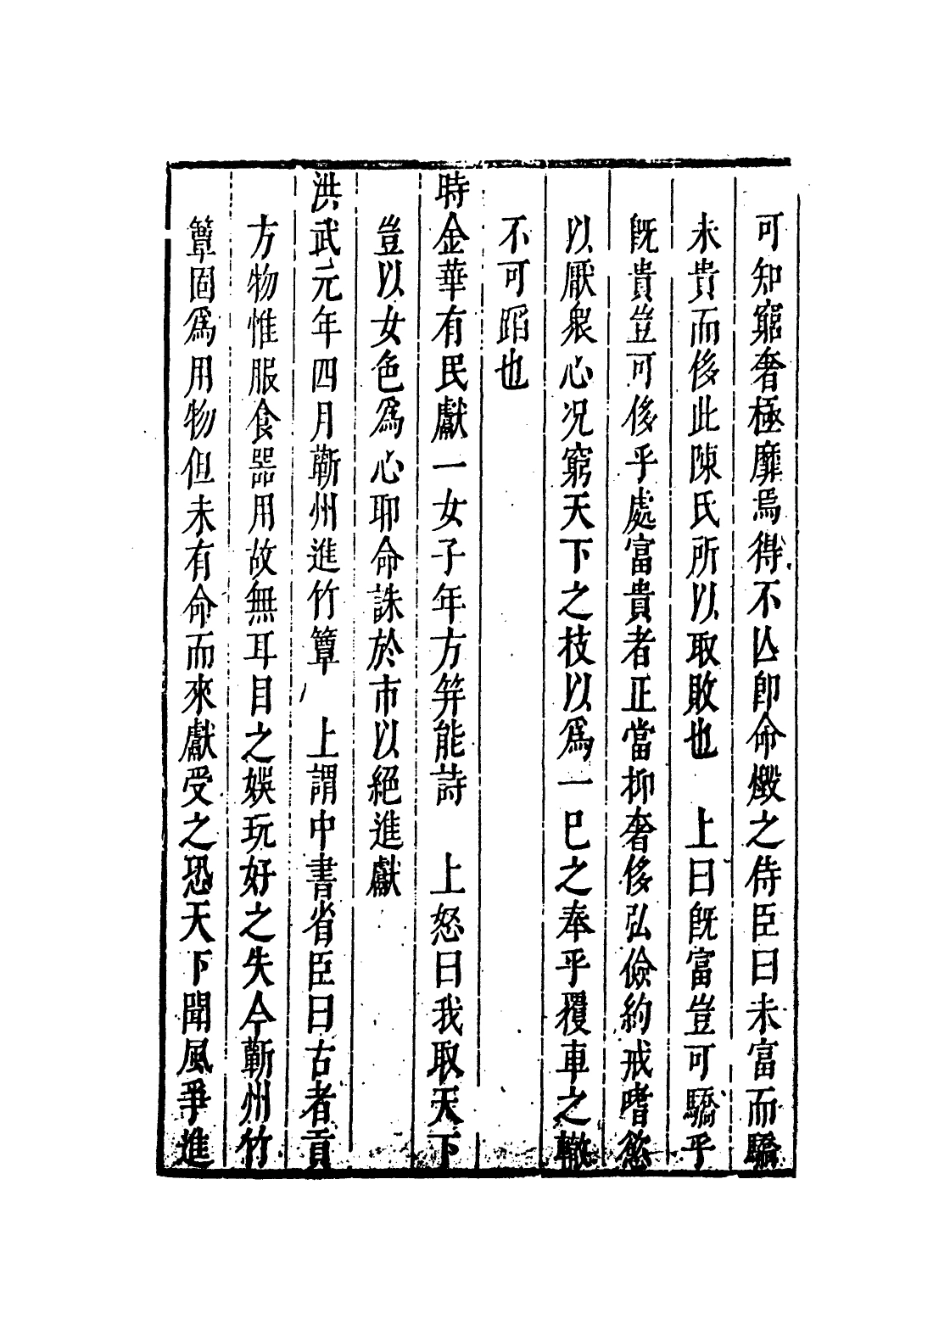 可知窮奢極靡焉得不亾即命燬之侍臣曰未富而驕
未貴而侈此陳氏所以取敗也　上曰既富豈可驕乎
既貴豈可侈乎處富貴者正當抑奢侈弘儉約戒嗜慾
以厭衆心况窮天下之技以爲一已之奉乎覆車之轍
不可蹈也
時金華有民獻一女子年方笄能詩　上怒曰我取天下
豈以女色爲心耶命誅於市以絕進獻
洪武元年四月蘄州進竹簟　上謂中書省臣曰古者貢
方物惟服食器用故無耳目之娛玩好之失今蘄州竹
簟固爲用物但未有命而來獻受之恐天下聞風爭進